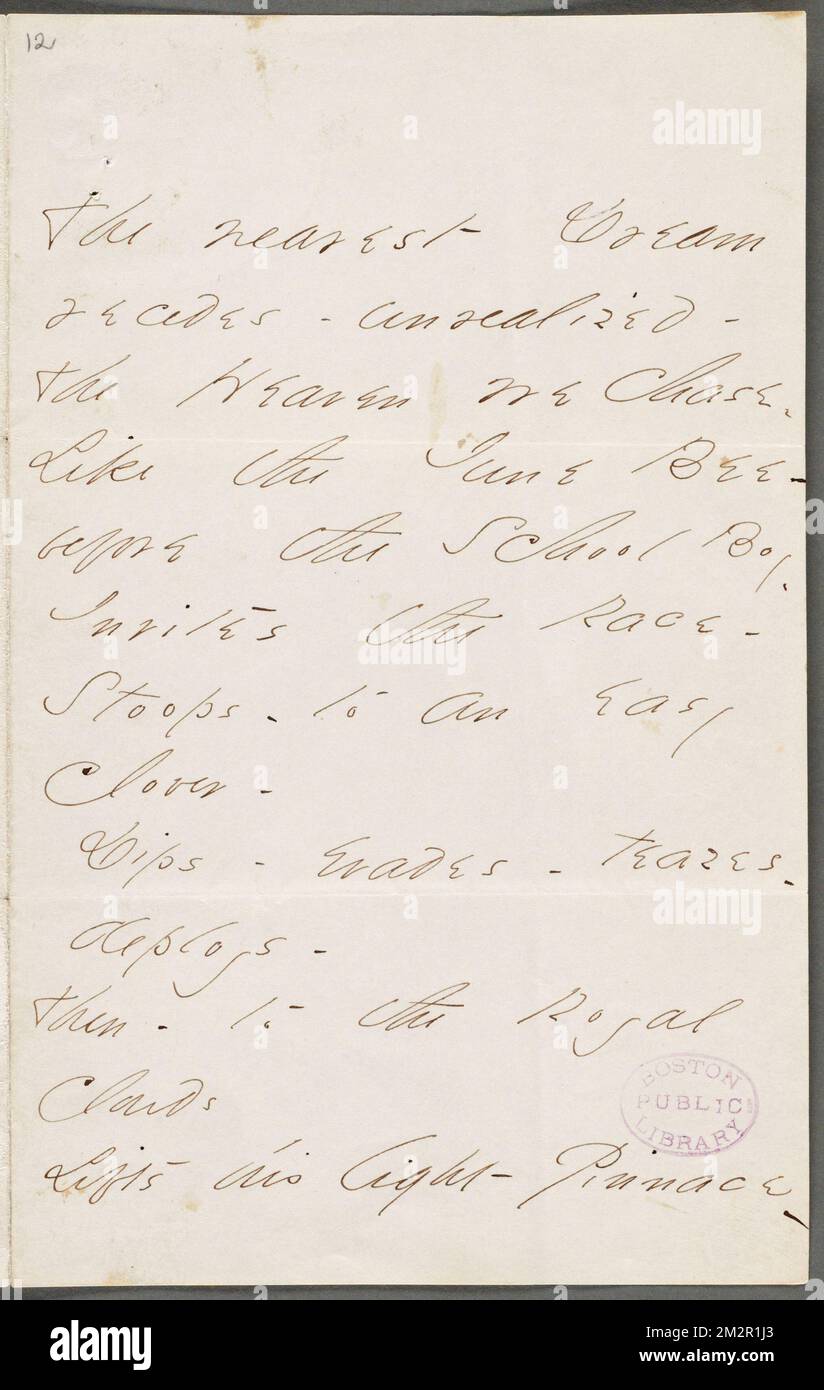 12
The nearest Dream
recedes - unrealized -
The Heaven we Chase -
Like the June Bee -
before the School Boy,
Invites the Race -
Stoops - to an Easy
Clover -
Dips - Evades - Teazes -
deploys -
Then - to the Royal
Clouds
Lifts his light Pinnace,
BOSTON
PUBLIC
LIBRARY
alamy
alamy
alamy
Image ID: 2M2R1J3
www.alamy.com